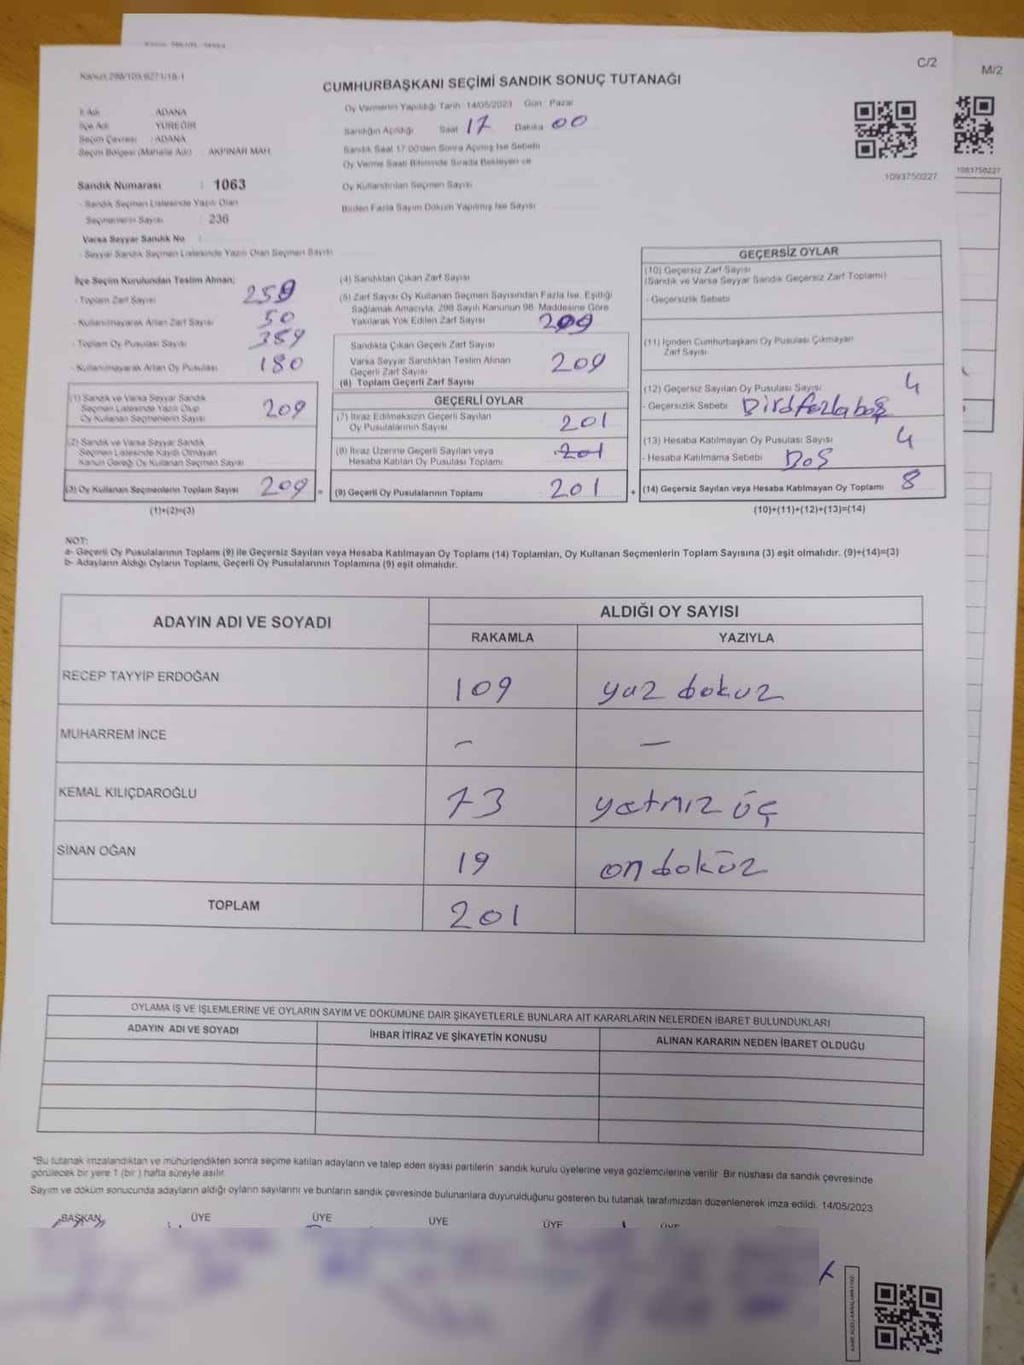 Kanun 298/109-6271/18-1
C/2
M/2
CUMHURBAŞKANI SEÇİMİ SANDIK SONUÇ TUTANAĞI
İl Adı : ADANA
İlçe Adı : YÜREĞİR
Seçim Çevresi : ADANA
Seçim Bölgesi (Mahalle Adı) : AKPINAR MAH.
Oy Vermenin Yapıldığı Tarih : 14/05/2023 Gün : Pazar
Sandığın Açıldığı Saat 17 Dakika 00
Sandık Saat 17:00'den Sonra Açılmış İse Sebebi
Oy Verme Saati Bitiminde Sırada Bekleyen ve
Oy Kullandırılan Seçmen Sayısı
Birden Fazla Sayım Döküm Yapılmış İse Sayısı
1093750227
1093750227
Sandık Numarası : 1063
- Sandık Seçmen Listesinde Yazılı Olan
Seçmenlerin Sayısı : 236
Varsa Seyyar Sandık No :
- Seyyar Sandık Seçmen Listesinde Yazılı Olan Seçmen Sayısı
İlçe Seçim Kurulundan Teslim Alınan;
- Toplam Zarf Sayısı 259
- Kullanılmayarak Artan Zarf Sayısı 50
- Toplam Oy Pusulası Sayısı 389
- Kullanılmayarak Artan Oy Pusulası 180
(1) Sandık ve Varsa Seyyar Sandık
Seçmen Listesinde Yazılı Olup
Oy Kullanan Seçmenlerin Sayısı 209
(2) Sandık ve Varsa Seyyar Sandık
Seçmen Listesinde Kayıtlı Olmayan
Kanun Gereği Oy Kullanan Seçmen Sayısı
(3) Oy Kullanan Seçmenlerin Toplam Sayısı 209
(1)+(2)=(3)
(4) Sandıktan Çıkan Zarf Sayısı
(5) Zarf Sayısı Oy Kullanan Seçmen Sayısından Fazla İse, Eşitliği
Sağlamak Amacıyla, 298 Sayılı Kanunun 98. Maddesine Göre
Yakılarak Yok Edilen Zarf Sayısı 209
Sandıkta Çıkan Geçerli Zarf Sayısı
Varsa Seyyar Sandıktan Teslim Alınan
Geçerli Zarf Sayısı 209
(6) Toplam Geçerli Zarf Sayısı
GEÇERLİ OYLAR
(7) İtiraz Edilmeksizin Geçerli Sayılan
Oy Pusulalarının Sayısı 201
(8) İtiraz Üzerine Geçerli Sayılan veya
Hesaba Katılan Oy Pusulası Toplamı 201
= (9) Geçerli Oy Pusulalarının Toplamı 201
GEÇERSİZ OYLAR
(10) Geçersiz Zarf Sayısı
(Sandık ve Varsa Seyyar Sandık Geçersiz Zarf Toplamı)
- Geçersizlik Sebebi
(11) İçinden Cumhurbaşkanı Oy Pusulası Çıkmayan
Zarf Sayısı
(12) Geçersiz Sayılan Oy Pusulası Sayısı 4
- Geçersizlik Sebebi Birdfazlaboş
(13) Hesaba Katılmayan Oy Pusulası Sayısı 4
- Hesaba Katılmama Sebebi Boş
+ (14) Geçersiz Sayılan veya Hesaba Katılmayan Oy Toplamı 8
(10)+(11)+(12)+(13)=(14)
NOT:
a- Geçerli Oy Pusulalarının Toplamı (9) ile Geçersiz Sayılan veya Hesaba Katılmayan Oy Toplamı (14) Toplamları, Oy Kullanan Seçmenlerin Toplam Sayısına (3) eşit olmalıdır. (9)+(14)=(3)
b- Adayların Aldığı Oyların Toplamı, Geçerli Oy Pusulalarının Toplamına (9) eşit olmalıdır.
ADAYIN ADI VE SOYADI
ALDIĞI OY SAYISI
RAKAMLA YAZIYLA
RECEP TAYYİP ERDOĞAN 109 yüz dokuz
MUHARREM İNCE - -
KEMAL KILIÇDAROĞLU 73 yetmiz üç
SİNAN OĞAN 19 on doküz
TOPLAM 201
OYLAMA İŞ VE İŞLEMLERİNE VE OYLARIN SAYIM VE DÖKÜMÜNE DAİR ŞİKAYETLERLE BUNLARA AİT KARARLARIN NELERDEN İBARET BULUNDUKLARI
ADAYIN ADI VE SOYADI İHBAR İTİRAZ VE ŞİKAYETİN KONUSU ALINAN KARARIN NEDEN İBARET OLDUĞU
*Bu tutanak imzalandıktan ve mühürlendikten sonra seçime katılan adayların ve talep eden siyasi partilerin sandık kurulu üyelerine veya gözlemcilerine verilir. Bir nüshası da sandık çevresinde
görülecek bir yere 1 (bir) hafta süreyle asılır.
Sayım ve döküm sonucunda adayların aldığı oyların sayılarını ve bunların sandık çevresinde bulunanlara duyurulduğunu gösteren bu tutanak tarafımızdan düzenlenerek imza edildi. 14/05/2023
BAŞKAN ÜYE ÜYE ÜYE ÜYE ÜYE